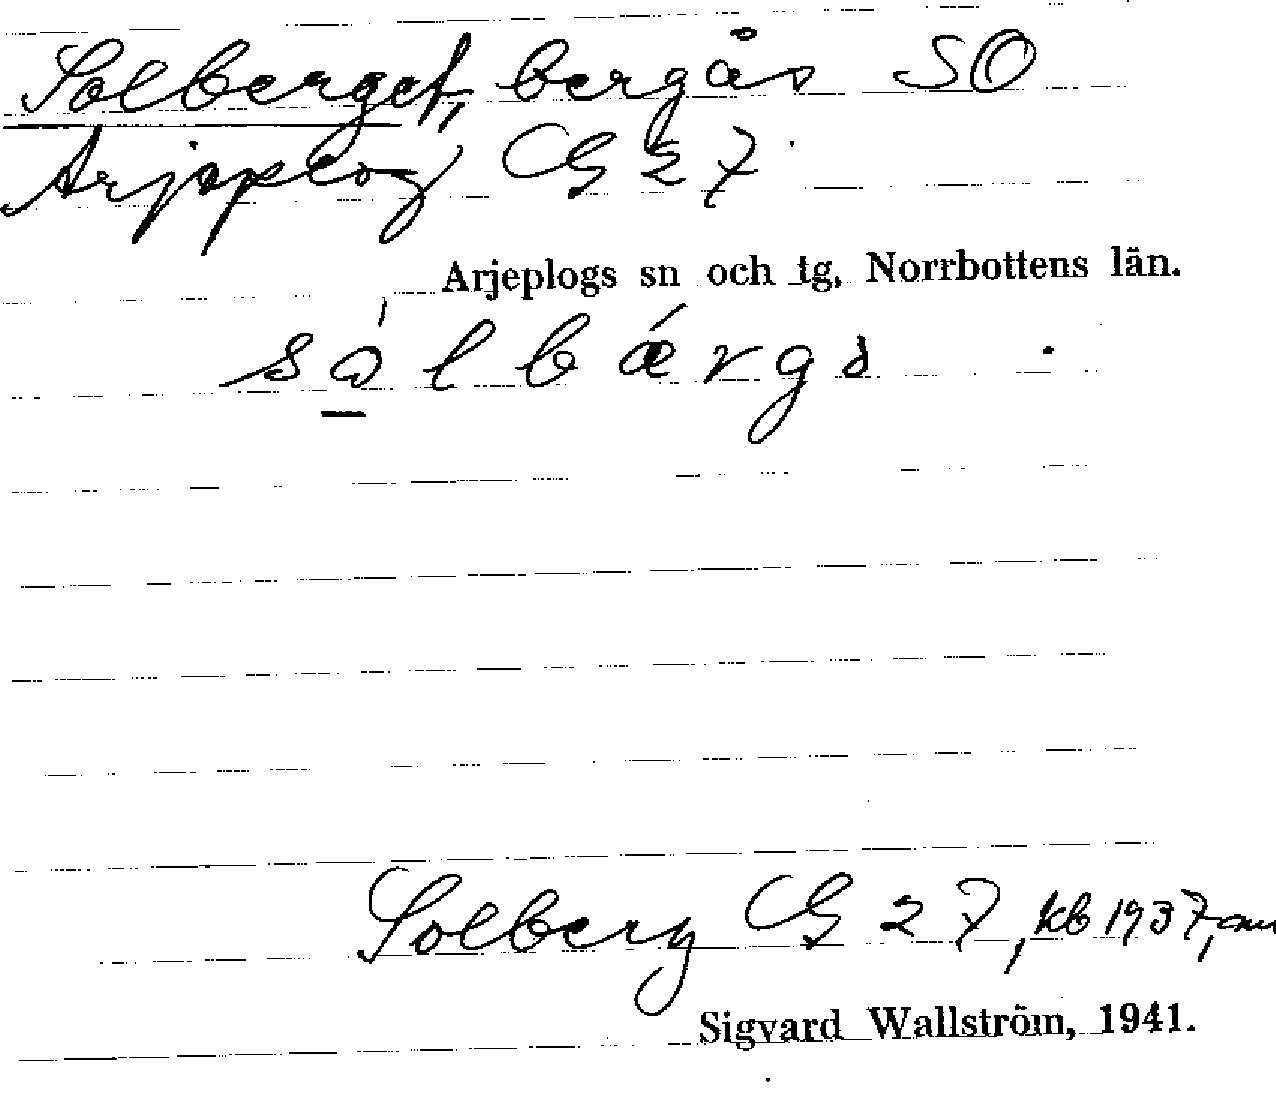 Solberget, bergås SO
Arjeplog G 27
Arjeplogs sn och tg, Norrbottens län.
Solberg G 27, kb 1937,
Sigvard Wallström, 1941.